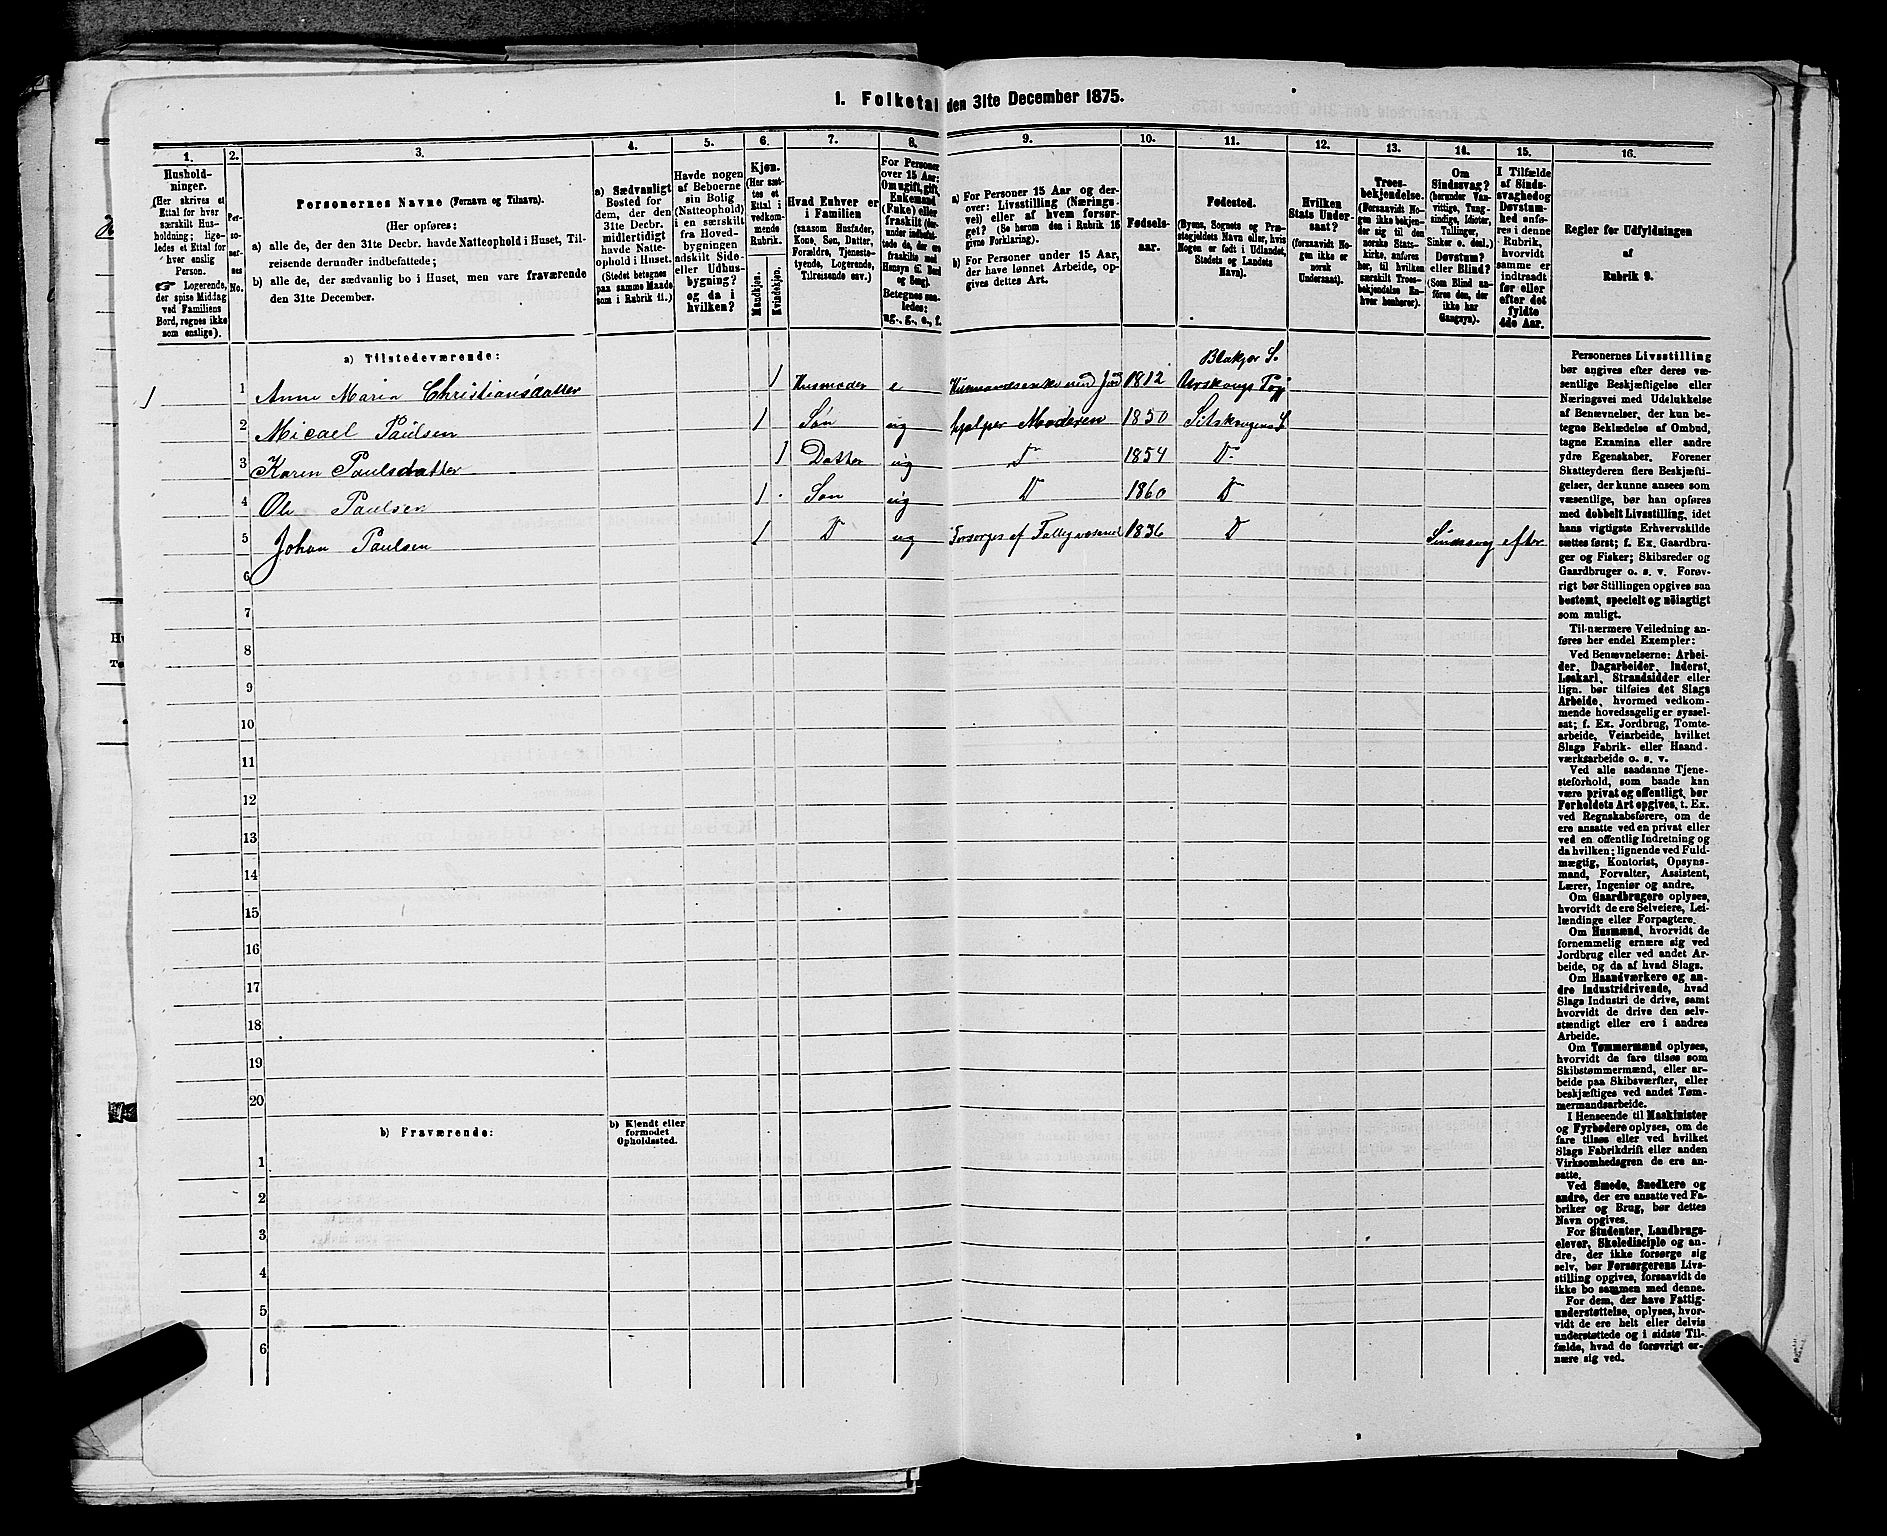 1. Folketal den 31te December 1875.
1. 2. 3. 4. 5. 6. 7. 8. 9. 10. 11. 12. 13. 14. 15. 16.
Hushold-
ninger.
(Her skrives et
Ettal for hver
særskilt Hus-
holdning; lige-
ledes et Ettal for
hver enslig
Person.
Logerende,
der spise Middag
ved Familiens
Bord, regnes ikke
som enslige).
Per-
so-
ner-
nes
No.
Personernes Navne (Fornavn og Tilnavn).
(Her opføres:
a) alle de, der den 31te Decbr. havde Natteophold i Huset, Til-
reisende derunder indbefattede;
b) alle de, der sædvanlig bo i Huset, men vare fraværende
den 31te December.
a) Sædvanligt
Bosted for
dem, der den
31te Decbr.
midlertidigt
havde Natte-
ophold i Huset.
(Stedet betegnes
paa samme Maade
som i Rubrik 11.)
Havde nogen
af Beboerne
sin Bolig
(Natteophold)
i en særskilt
fra Hoved-
bygningen
adskilt Side-
eller Udhus-
bygning?
og da i
hvilken?
Kjøn.
(Her sæt-
tes et
Ettal i
vedkom-
mende
Rubrik.
Mandkjøn.
Kvindekjøn.
Hvad Enhver er
i Familien
(saasom Husfader,
Kone, Søn, Datter,
Forældre, Tjeneste-
tyende, Logerende,
Tilreisende osv.)
For Personer
over 15 Aar:
Om ugift, gift,
Enkemand
(Enke) eller
fraskilt
Betegnes saa-
ledes:
ug., g., e., f.
a) For Personer 15 Aar og der-
over: Livsstilling (Nærings-
vei) eller af hvem forsør-
get? (Se herom den i Rubrik 16
givne Forklaring).
b) For Personer under 15 Aar,
der have lønnet Arbeide, op-
gives dettes Art.
Fødsels-
aar.
Fødested.
(Byens, Sognets og Præ-
stegjeldets Navn eller, hvis
Nogen er født i Udlandet,
Stedets og Landets
Navn).
Hvilken
Stats Under-
saat?
(forsaavidt No-
gen ikke er
norsk
Undersaat).
Troes-
bekjendelse.
(Forsaavidt No-
gen ikke bekjen-
der sig til den
norske Stats-
kirke, anføres
her, til hvilken
særskilt Troes-
bekjendelse En-
hver henhører).
Om
Sindssvag?
(herunder Van-
vittige, Tung-
sindige, Idioter,
Tullinger,
Sinker o. desl.)
Døvstum?
eller Blind?
(Som Blind an-
føres den, der
ikke har
Gangsyn).
I Tilfælde
af Sinds-
svaghed og
Døvstum-
hed anfø-
res i denne
Rubrik,
hvorvidt
samme er
indtraadt
før eller
efter det
fyldte
4de Aar.
Regler for Udfyldningen
af
Rubrik 9.
a) Tilstedeværende:
Blakjer S.
1 1 Anne Maria Christiansdatter 1 Husmoder e Husmandsenke med Jord 1812 Urskougs Pgj
2 Micael Paulsen 1 Søn ug hjelper Moderen 1850 Sitskougens S
3 Karen Paulsdatter 1 Datter ug D 1854 D
4 Ole Paulsen 1 Søn ug D 1860 D
5 Johan Paulsen 1 D ug Forsørges af Fattigvæsenet 1836 D Sindssvag efter
6
7
8
9
10
11
12
13
14
15
16
17
18
19
20
b) Fraværende:
b) Kjendt eller
formodet
Opholdssted.
1
2
3
4
5
6
Personernes Livsstilling
bør angives efter deres væ-
sentlige Beskjæftigelse eller
Næringsvei med Udelukkelse
af Benævnelser, der kun be-
tegne Beklædelse af Ombud,
tagne Examina eller andre
ydre Egenskaber. Forener
Skatteyderen flere Beskjæfti-
gelser, der kunne ansees som
væsentlige, bør han opføres
med dobbelt Livsstilling, idet
hans vigtigste Erhvervskilde
sættes først; f. Ex. Gaardbru-
ger og Fisker; Skibsreder og
Gaardbruger o. s. v. Forøv-
rigt bør Stillingen opgives saa
bestemt, specielt og nøiagtigt
som muligt.
Til nærmere Veiledning an-
føres her endel Exempler:
Ved Benævnelserne: Arbei-
der, Dagarbeider, Inderst,
Løskarl, Strandsidder eller
lign. bør tilføies det Slags
Arbeide, hvormed vedkom-
mende hovedsagelig er syssel-
sat; f. Ex. Jordbrug, Tomte-
arbeide, Veiarbeide, hvilket
Slags Fabrik- eller Haand-
værksarbeide o. s. v.
Ved alle saadanne Tjene-
steforhold, som baade kan
være privat og offentligt, bør
Forholdets Art opgives, t. Ex.
ved Regnskabsførere, om de
ere ansatte ved en privat eller
ved en offentlig Indretning og
da hvilken; lignende ved Fuld-
mægtig, Kontorist, Opsyns-
mand, Forvalter, Assistent,
Lærer, Ingeniør og andre.
Om Gaardbrugere oplyses,
hvorvidt de ere Selveiere, Lei-
lændinge eller Forpagtere.
Om Husmænd, hvorvidt de
fornemmelig ernære sig ved
Jordbrug eller ved andet Ar-
beide, og da af hvad Slags.
Om Haandværkere og an-
dre Industridrivende, hvad
Slags Industri de drive, samt
hvorvidt de drive den selv-
stændigt eller ere i andres
Arbeide.
Om Tømmermænd oplyses,
hvorvidt de fare tilsøs som
Skibstømmermænd, eller ar-
beide paa Skibsværfter, eller
beskjæftiges ved andet Tøm-
mermandsarbeide.
I Henseende til Maskinister
og Fyrbødere oplyses, om de
fare tilsøs eller ved hvilket
Slags Fabrikdrift eller anden
Virksomhedsgren de ere an-
satte.
Ved Smede, Snedkere og
andre, der ere ansatte ved Fa-
briker og Brug, bør dettes
Navn opgives.
For Studenter, Landbrugs-
elever, Skoledisciple og an-
dre, der ikke forsørge sig
selv, bør Forsørgerens Livs-
stilling opgives, forsaavidt de
ikke bo sammen med denne.
For dem, der have Fattig-
understøttelse, oplyses, hvor-
vidt de ere helt eller delvis
understøttede og i sidste Til-
fælde, hvad de forøvrigt er-
nære sig ved.